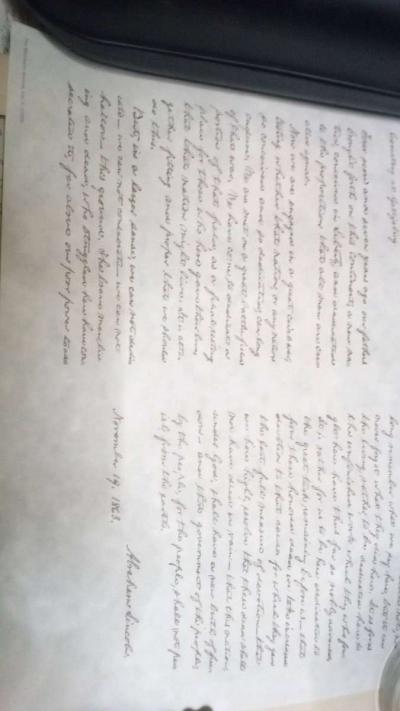 Cemetery at Gettysburg.
Four score and seven years ago our fathers
brought forth on this continent, a new na-
tion, conceived in Liberty, and dedicated
to the proposition that all men are cre-
ated equal.
Now we are engaged in a great civil war,
testing whether that nation, or any nation
so conceived and so dedicated, can long
endure. We are met on a great battle-field
of that war. We have come to dedicate a
portion of that field, as a final resting
place for those who here gave their lives
that that nation might live. It is alto-
gether fitting and proper that we should
do this.
But, in a larger sense, we can not dedi-
cate— we can not consecrate— we can not
hallow— this ground. The brave men, liv-
ing and dead, who struggled here, have con-
secrated it, far above our poor power to add
long remember what we say here, but it can
never forget what they did here. It is for us
the living, rather, to be dedicated here to
the unfinished work which they who fou-
ght here have thus far so nobly advanced.
It is rather for us to be here dedicated to
the great task remaining before us— that
from these honored dead we take increased
devotion to that cause for which they gave
the last full measure of devotion— that
we here highly resolve that these dead shall
not have died in vain— that this nation,
under God, shall have a new birth of free-
dom— and that government of the people,
by the people, for the people, shall not per-
ish from the earth.
Abraham Lincoln.
November 19, 1863.